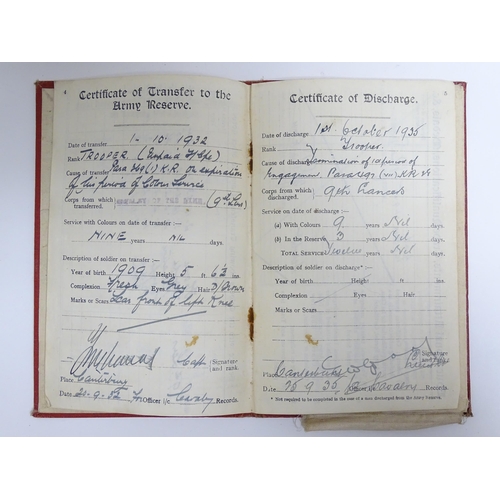 4
Certificate of Transfer to the
Army Reserve.
Date of transfer 1-10-1932
Rank TROOPER (Unpaid
Cause of transfer Para 360 (1) K.R. on expiration
of his Period of Service
Corps from which
transferred.
Service with Colours on date of transfer:—
NINE years NIL days.
Description of soldier on transfer:—
Year of birth 1909 Height 5 ft 6½ ins
Complexion Fresh Eyes Grey Hair Brown
Marks or Scars Scar front of left Knee
Capt Signature
and rank.
Place Canterbury
Date 20-9-32 Officer i/c Cavalry Records.
5
Certificate of Discharge.
Date of discharge 1st October 1935
Rank Trooper.
Cause of discharge Termination of period of
Engagement. K.R.
Corps from which
discharged. 9th Lancers
Service on date of discharge:—
(a) With Colours 9 years Nil days.
(b) In the Reserve 3 years Nil days.
TOTAL SERVICE Twelve years Nil days.
Description of soldier on discharge*:—
Year of birth Height ft. ins.
Complexion Eyes Hair
Marks or Scars
Signature
and rank
Place Canterbury
Date 25.9.35 Officer i/c Cavalry Records.
* Not required to be completed in the case of a man discharged from the Army Reserve.